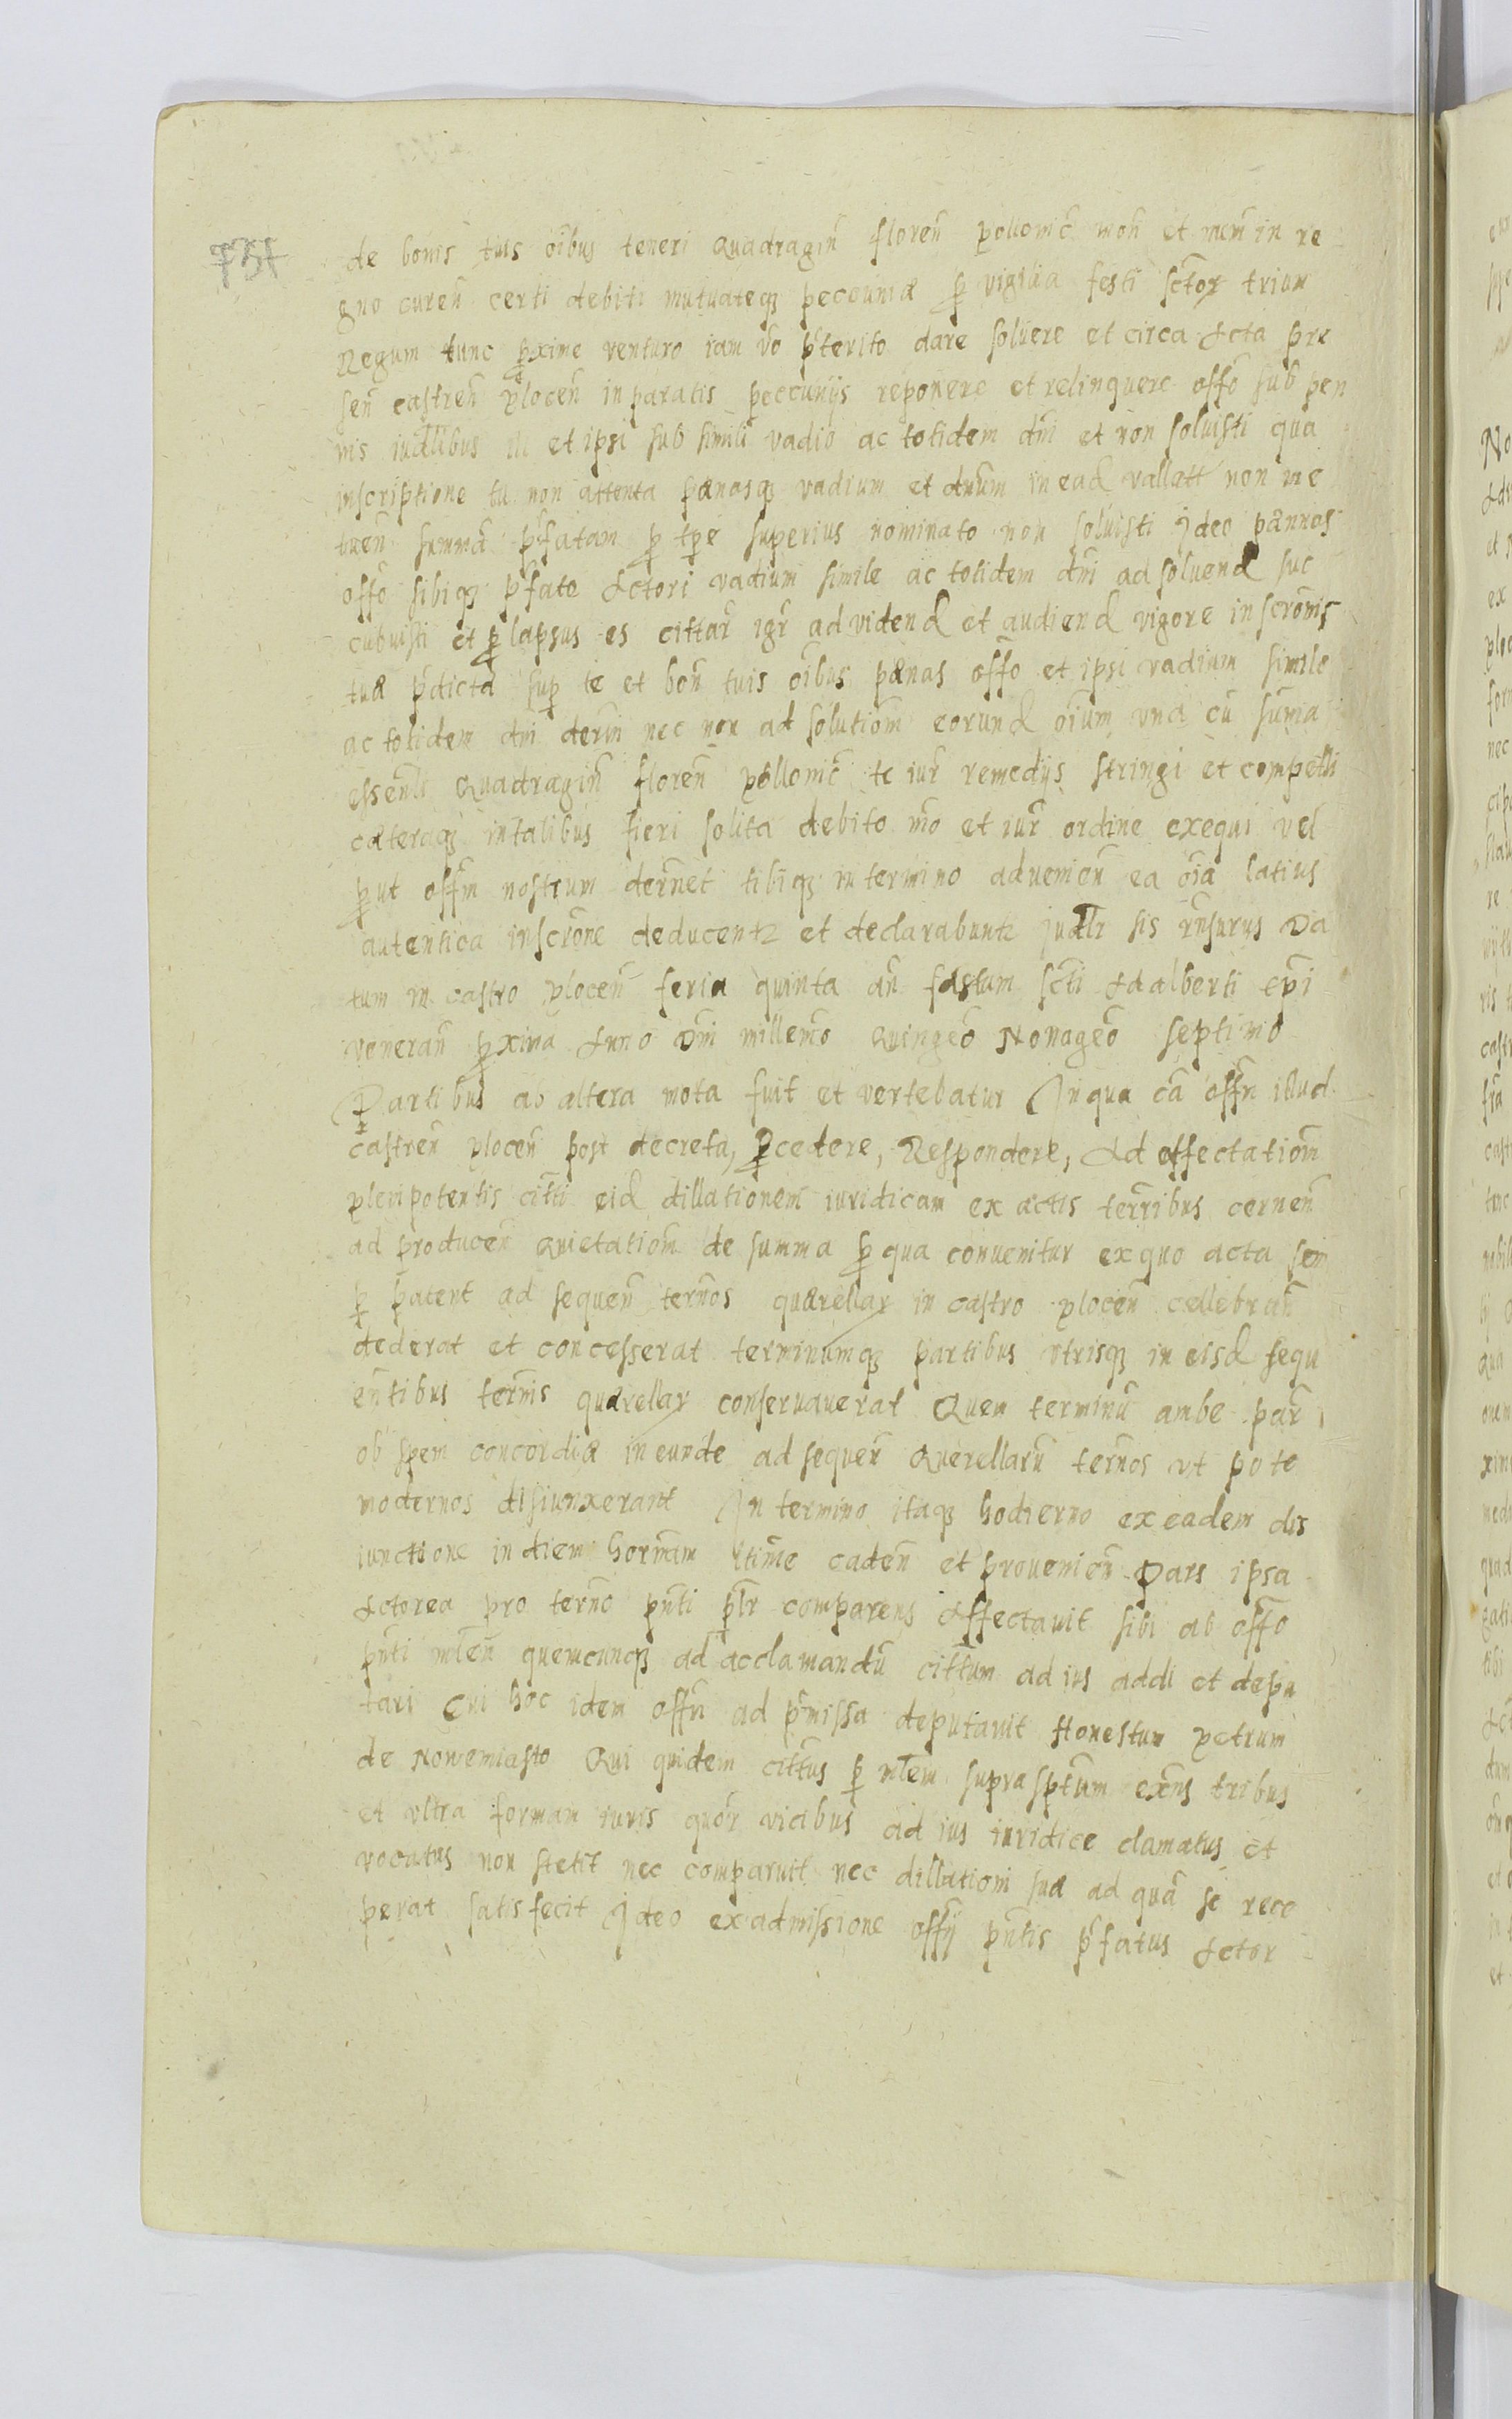 de bonis tuis oibus teneri quadragin floren pollonic mon et num in re
gno curen certi debiti mutuateqz peccuniæ p vigilia festi sctor trium
Regum tunc pxime venturo iam vo pterito dare soluere et circa Acta pre
sen castren plocen in paratis peccunijs reponere et relinquere offo sub pen
nis iudlibus et ipsi sub simili vadio ac totidem dni et non soluisti qua
inscriptione tu non attenta pænasqz vadium et dnum in ead vallatt non me
tuen summa pfatam p tpe superius nominato non soluisti Ideo pænnas
offo sibiqz pfato Actori vadium simile ac totidem dni ad soluend suc
cubuisti et plapsus es cittar igr ad vidend et audiend vigore inscronis
tuæ pdicta sup te et bon tuis oibus pænas offo et ipsi vadium simile
ac totidem dni derni nec non ad solutiom eorund oium una cu suma
essenli quadragin floren pollonic te iur remedijs stringi et compelli
cæteraqz in talibus fieri solita debito mo et iur ordine exequi vel
put offm nostrum dernet tibiqz in termino advenien ea oia latius
autentica inscrone deducentz et declarabuntz judlr sis rnsurus Da
tum in castro plocen feria quinta an fæstum scti Adalberti epi
veneran pxima Anno Dni millemo quingeo Nonageo septimo
Partibus ab altera mota fuit et vertebatur In qua ca offm illud
castren plocen post decreta, pcedere, Respondere, Ad affectatiom
plenipotentis citti eid dillationem iuridicam ex actis terribus cernen
ad producen quietatiom de summa p qua convenitur ex quo acta sem
p patent ad sequen ternos quærellar in castro plocen cellebran
dederat et concesserat terminumqz partibus vtrisqz in eisd sequ
entibus ternis quærellar conservauerat Quem terminu ambe par
ob spem concordiæ ineunde ad sequen querellaru ternos ut pote
modernos disiunxerant In termino itaqz hodierno ex eadem dis
iunctione in diem hornam ltime caden et provenien Pars ipsa
Actorea pro terno pnti plr comparens Affectavit sibi ab offo
pnti mlen quemcunqz ad acclamandu cittum ad ius addi et depu
tari Cui hoc idem offm ad pmissa deputavit Honestum Petrum
de Nowemiasto Qui quidem cittus p mlem suprasptum exns tribus
et vltra formam iuris quor vicibus ad ius iuridice clamatus et
vocatus non stetit nec comparuit nec dillationi suæ ad qua se rece
perat satisfecit Ideo ex admissione offij pntis pfatus Actor